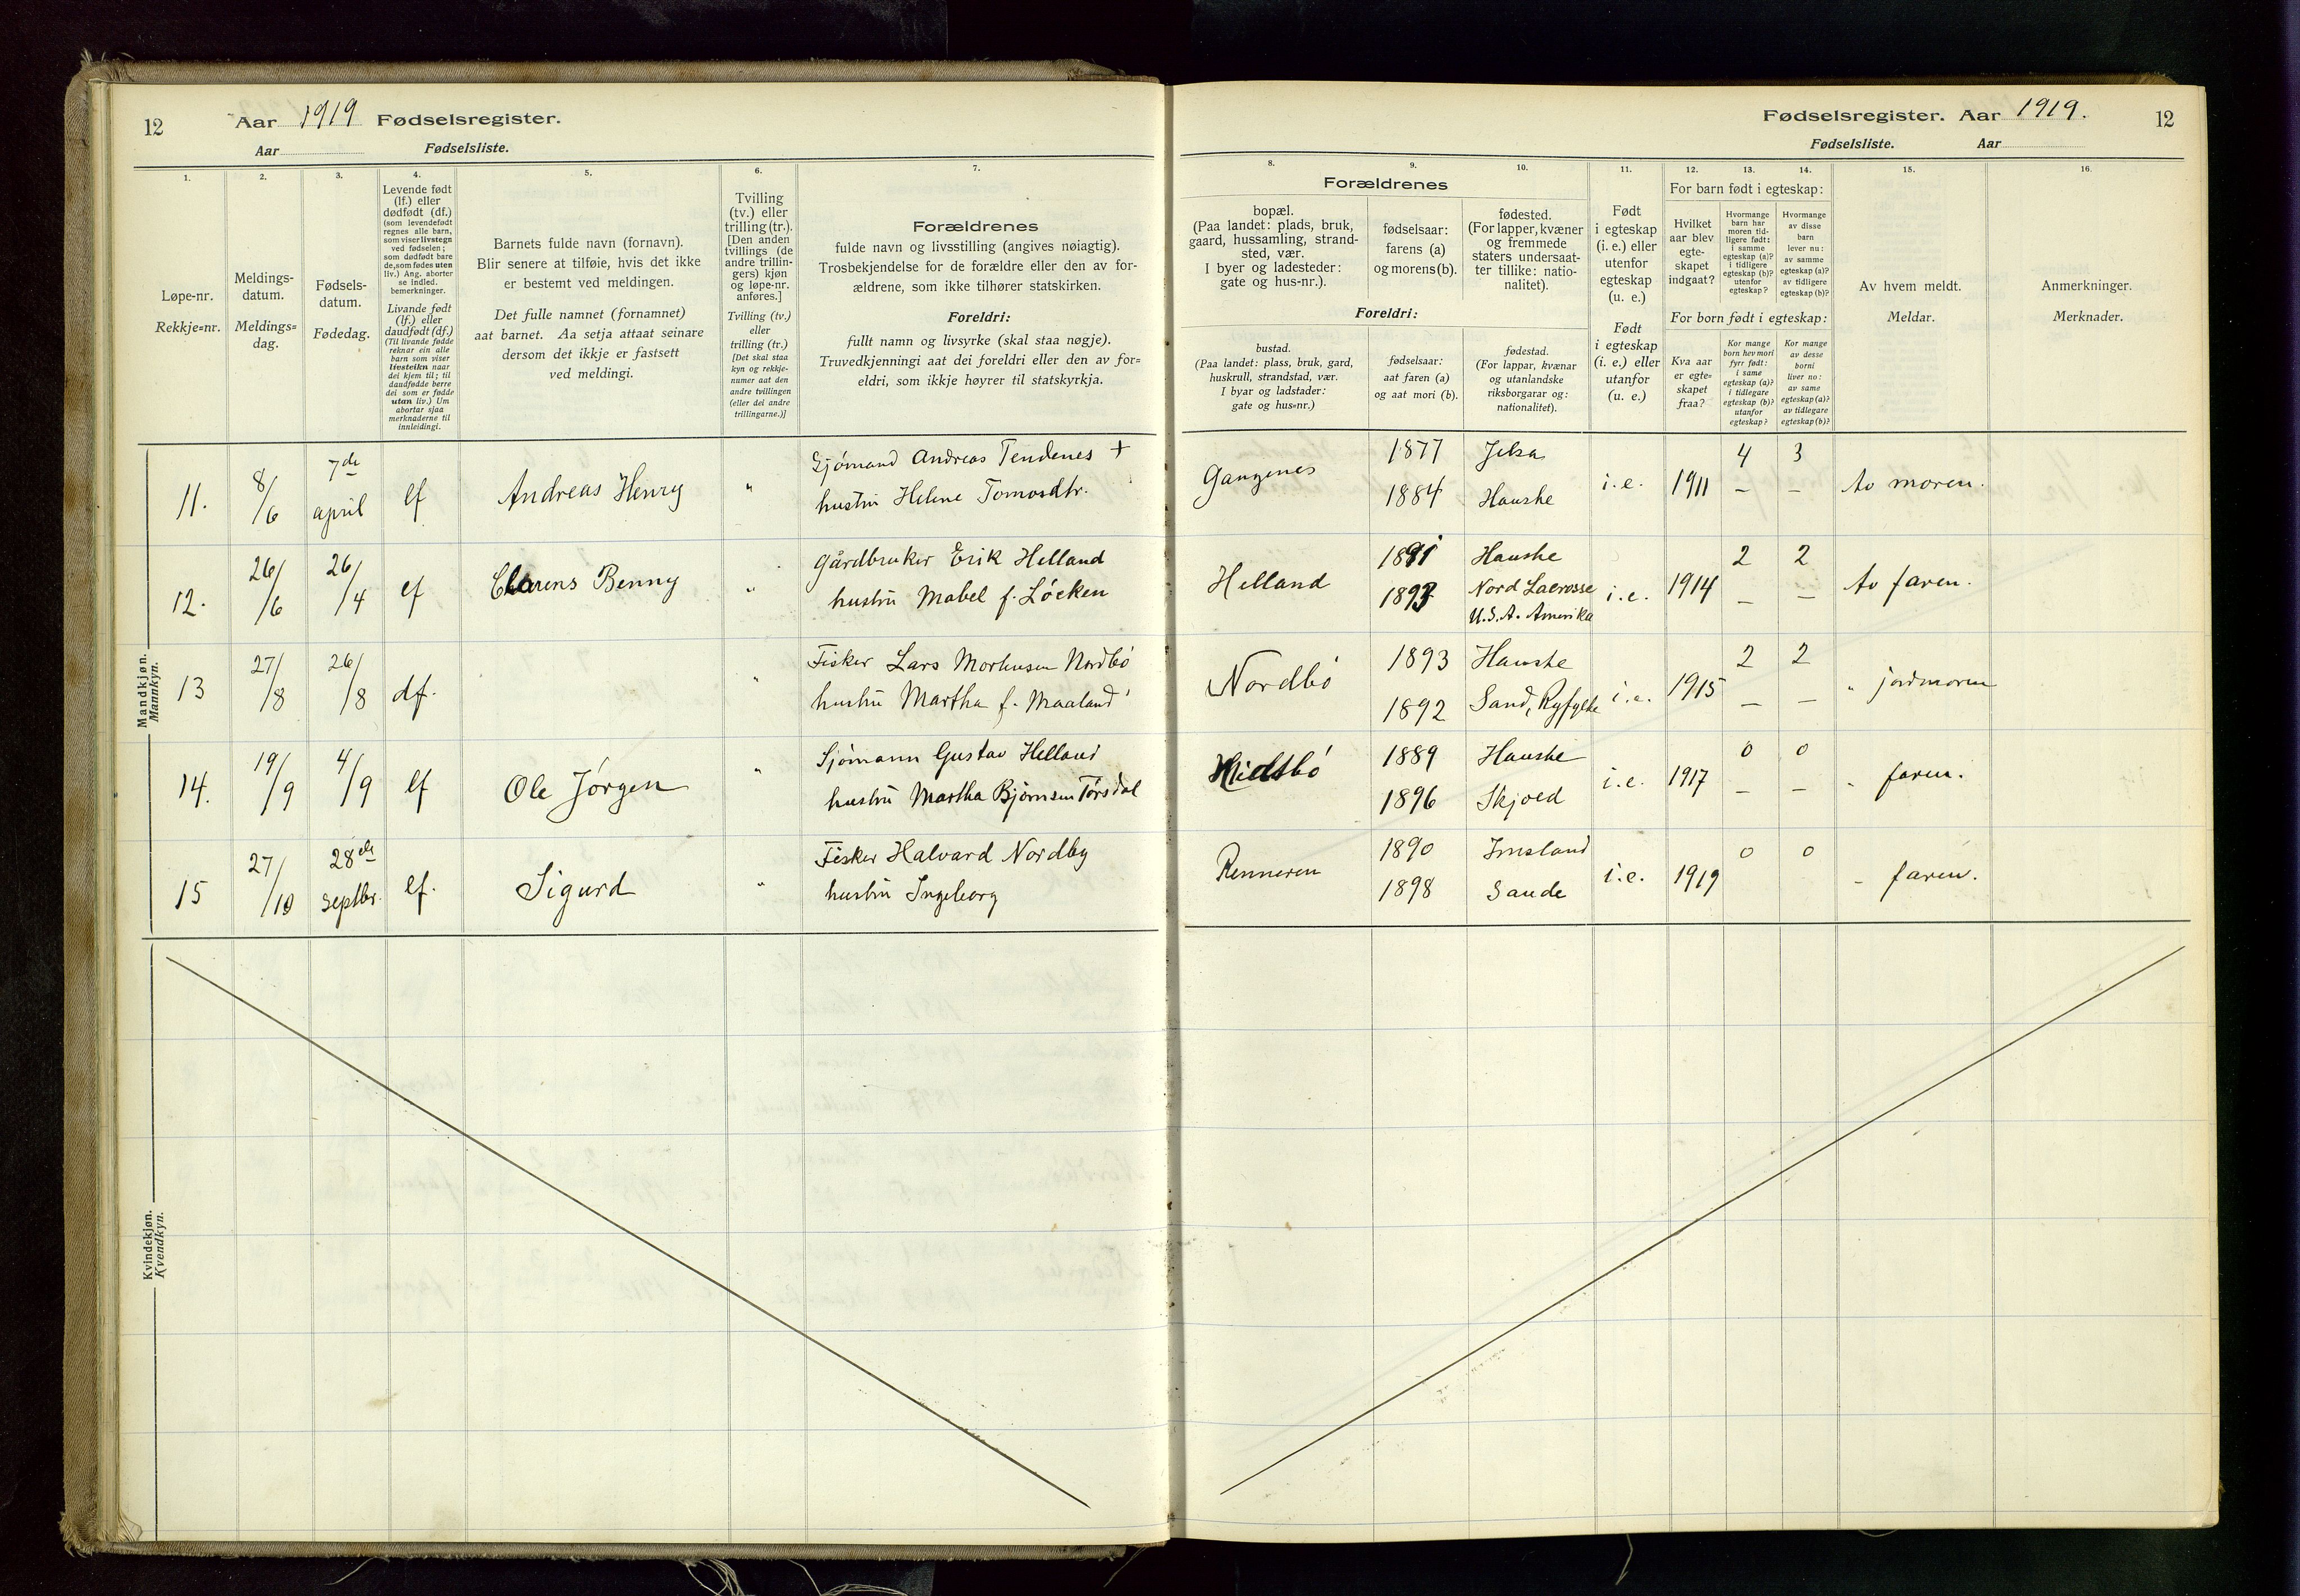 12 Aar 1919 Fødselsregister.
Aar Fødselsliste.
1. 2. 3. 4. 5. 6. 7.
Løpe-nr.
Rekkje=nr.
Meldings-
datum.
Meldings=
dag.
Fødsels-
datum.
Fødedag.
Levende født
(lf.) eller
dødfødt (df.)
(som levendefødt
regnes alle barn,
som viser livstegn
ved fødselen;
som dødfødt bare
de, som fødes uten
liv.) Ang. aborter
se indled.
bemerkninger.
Livande født
(lf.) eller
daudfødt (df.)
(Til livande fødde
reknar ein alle
barn som viser
livsteikn naar
dei kjem til; til
daudfødde berre
dei som er fødde
utan liv.) Um
abortar sjaa
merknaderne til
innleidingi.
Barnets fulde navn (fornavn).
Blir senere at tilføie, hvis det ikke
er bestemt ved meldingen.
Det fulle namnet (fornamnet)
aat barnet. Aa setja attaat seinare
dersom det ikkje er fastsett
ved meldingi.
Tvilling
(tv.) eller
trilling (tr.).
[Den anden
tvillings (de
andre trillin-
gers) kjøn
og løpe-nr.
anføres.]
Tvilling (tv.)
eller
trilling (tr.)
[Det skal staa
kyn og rekkje-
numer aat den
andre tvillingen
(eller dei andre
trillingarne.)]
Forældrenes
fulde navn og livsstilling (angives nøiagtig).
Trosbekjendelse for de forældre eller den av for-
ældrene, som ikke tilhører statskirken.
Foreldri:
fullt namn og livsyrke (skal staa nøgje).
Truvedkjenningi aat dei foreldri eller den av for=
eldri, som ikkje høyrer til statskyrkja.
Mandkjøn.
Mannkyn.
11. 8/6 7de april lf Andreas Henry " Sjömand Andreas Tendenes +
hustru Helene Tomasdtr.
12. 26/6 26/4 lf Clarens Benny " Gårdbruker Erik Helland
hustru Mabel f. Löcken
13 27/8 26/8 df. " Fisker Lars Morhusen Nordbö
hustru Martha f. Maaland
14. 19/9 4/9 lf Ole Jörgen " Sjömann Gustav Helland
hustru Martha Björnsen Törsdal
15 27/10 28de Septbr. lf. Sigurd " Fisker Halvard Nordby
hustru Ingeborg
Kvindekjøn.
Kvendkyn.
Fødselsregister. Aar 1919. 12
Fødselsliste. Aar
8. 9. 10. 11. 12. 13. 14. 15. 16.
Forældrenes
bopæl.
(Paa landet: plads, bruk,
gaard, hussamling, strand-
sted, vær.
I byer og ladesteder:
gate og hus-nr.).
fødselsaar:
farens (a)
og morens (b).
fødested.
(For lapper, kvæner
og fremmede
staters undersaat-
ter tillike: natio-
nalitet).
Foreldri:
bustad.
(Paa landet: plass, bruk, gard,
huskrull, strandstad, vær.
I byar og ladstader:
gate og hus=nr.)
fødselsaar:
aat faren (a)
og aat mori (b).
fødestad.
(For lappar, kvænar
og utanlandske
riksborgarar og:
nationalitet).
Født
i egteskap
(i. e.) eller
utenfor
egteskap
(u. e.)
Født
i egteskap
(i. e.) eller
utanfor
(u. e.)
For barn født i egteskap:
Hvilket
aar blev
egte-
skapet
indgaat?
Hvormange
barn har
moren tid-
ligere født:
i samme
egteskap (a)?
i tidligere
egteskap (b)?
utenfor
egteskap?
Hvormange
av disse
barn
lever nu:
av samme
egteskap (a)?
av tidligere
egteskap (b)?
For born født i egteskap:
Kva aar
er egte=
skapet
fraa?
Kor mange
born hev mori
fyrr født:
i same
egteskap (a)?
i tidlegare
egteskap (b)?
utanfor
egteskap?
Kor mange
av desse
borni
liver no:
av same
egteskap (a)?
av tidlegare
egteskap (b)?
Av hvem meldt.
Meldar.
Anmerkninger.
Merknader.
Gangenes 1877 Jelsa i. e. 1911 4 3 Av moren.
1884 Hauske – –
Helland 1891 Hauske i. e. 1914 2 2 Av faren.
1893 Nord Lacrosse – –
U.S.A. Amerika
Nordbö 1893 Hauske i. e. 1915 2 2 " jordmoren
1892 Sand, Ryfylke – –
Hidsbö 1889 Hauske i. e. 1917 0 0 " faren.
1896 Skjold – –
Renneren 1890 Imsland i. e. 1919 0 0 " faren.
1898 Sande